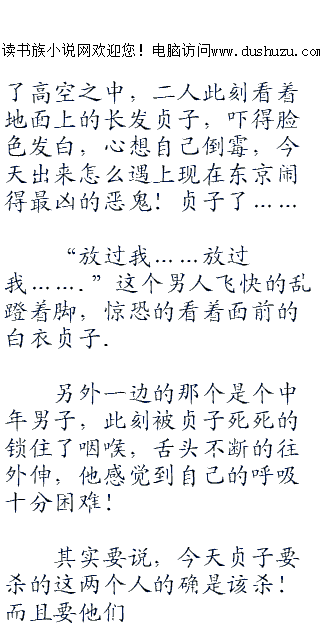 读书族小说网欢迎您！电脑访问www.dushuzu.com
了高空之中，二人此刻看着
地面上的长发贞子，吓得脸
色发白，心想自己倒霉，今
天出来怎么遇上现在东京闹
得最凶的恶鬼！贞子了……
“放过我……放过
我…….”这个男人飞快的乱
蹬着脚，惊恐的看着面前的
白衣贞子.
另外一边的那个是个中
年男子，此刻被贞子死死的
锁住了咽喉，舌头不断的往
外伸，他感觉到自己的呼吸
十分困难！
其实要说，今天贞子要
杀的这两个人的确是该杀！
而且要他们